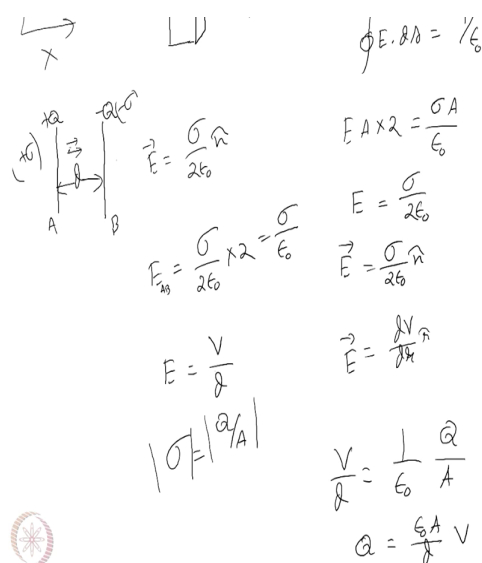 X
∮E.dA = 1/ε₀
+Q -Q(-σ)
(+σ) E⃗
d
A B
E⃗ = σ/2ε₀ n̂
E A×2 = σA/ε₀
E = σ/2ε₀
E_AB = σ/2ε₀ ×2 = σ/ε₀
E⃗ = σ/2ε₀ n̂
E = V/d
E⃗ = dV/dr n̂
|σ| = |Q/A|
V/d = 1/ε₀ Q/A
Q = ε₀A/d V